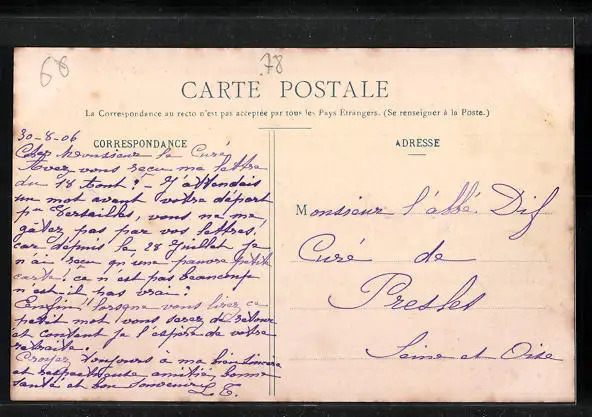 68
78
CARTE POSTALE
La Correspondance au recto n'est pas acceptée par tous les Pays Etrangers. (Se renseigner à la Poste.)
CORRESPONDANCE
ADRESSE
30-8-06
Cher Monsieur le Curé
Avez vous reçu ma lettre
du 18 Aout? - J'attendais
un mot avant votre départ
pr Versailles, vous ne me
gâtez pas par vos lettres,
car depuis le 28 Juillet je
n'ai reçu qu'une pauvre petite
carte! ca n'est pas beaucoup
n'est-il pas vrai?
Enfin lorsque vous lirez ce
petit mot vous serez de retour
et content je l'espère de votre
retraite.
Croyez toujours à ma bien sincère
et respectueuse amitié, bonne
santé et bon souvenir
Monsieur l'abbé
Curé de
Presles
Seine et Oise